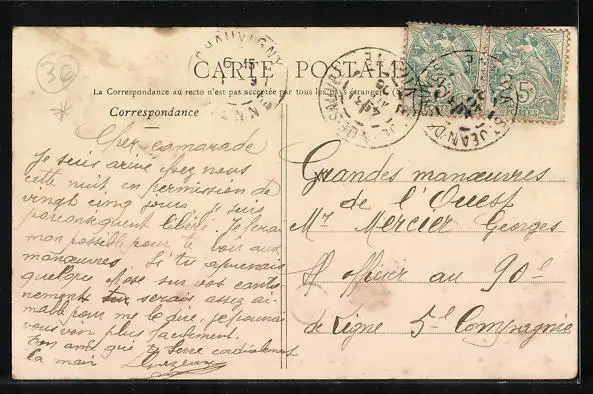 30
CHAUVIGNY
6 45
CARTE POSTALE
La Correspondance au recto n'est pas acceptée par tous les pays étrangers
Correspondance
Cher camarade
Je suis arivé chez nous
cette nuit en permission de
vingt cinq jours je suis
parconsequent libéré. Je ferai
mon possible pour te voir aux
manœuvres. Si tu aprenais
quelque chose sur vos cantu
nements tu serais assez ai-
mable pour me le dire, je pourrai
vous voir plus facilement.
Ton ami qui te serre cordialement
la main
Grandes manœuvres
de l'Ouest
Mr Mercier Georges
S/ officier au 90e
de Ligne 5e Compagnie
5c
POSTES